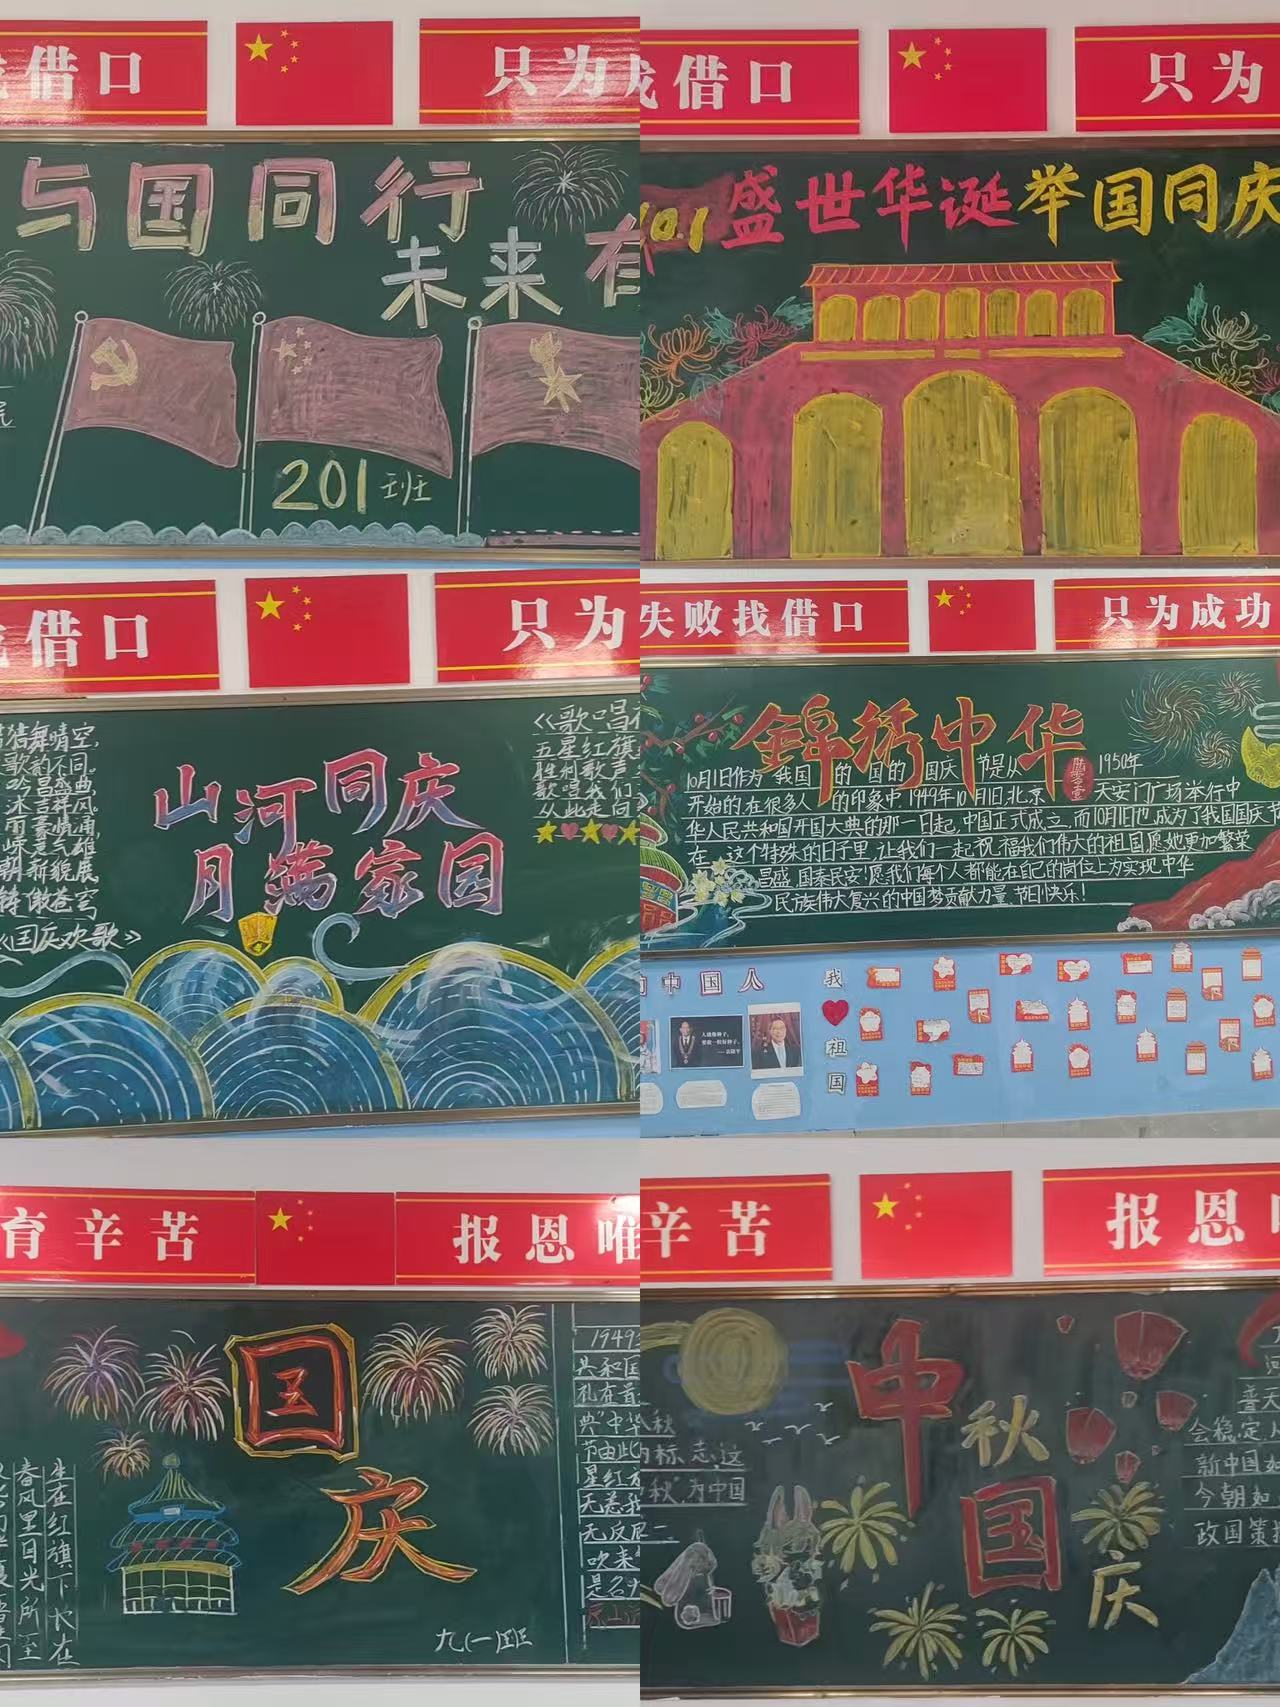 找借口
只为
与国同行
未来有
201班
找借口
只为
10.1 盛世华诞 举国同庆
找借口
只为
舞晴空,
歌韵不同。
吟昌盛曲,
沐吉祥风。
雨
朝新貌展,
铸傲苍穹
《国庆欢歌》
山河同庆
月满家园
《歌唱
五星红旗
胜利歌声
歌唱我们
从此走向
失败找借口
只为成功
锦绣中华
10月1日作为 我国 的 国的 国庆 节是从 1950年
开始的,在很多人 的印象中,1949年10月1日,北京 天安门广场举行中
华人民共和国开国大典的那一日起,中国正式成立,而10月1日也成为了我国国庆节
在 这个特殊的日子里,让我们一起祝福我们伟大的祖国,愿她更加繁荣
昌盛,国泰民安!愿我们每个人都能在自己的岗位上为实现中华
民族伟大复兴的中国梦贡献力量,节日快乐!
中国人
我
祖
国
人就像种子,
要做一粒好种子。
——袁隆平
育辛苦
报恩唯
国
庆
生在红旗下 长在
春风里目光所至
九(一)班
1949
共和国
礼在首
典"中华
节由此
星红
天
无反
吹来
是名
辛苦
报恩
中
秋
国
庆
秋
标志,这
秋",为中国
普天
会稳定,
新中国如
今朝如
政国策